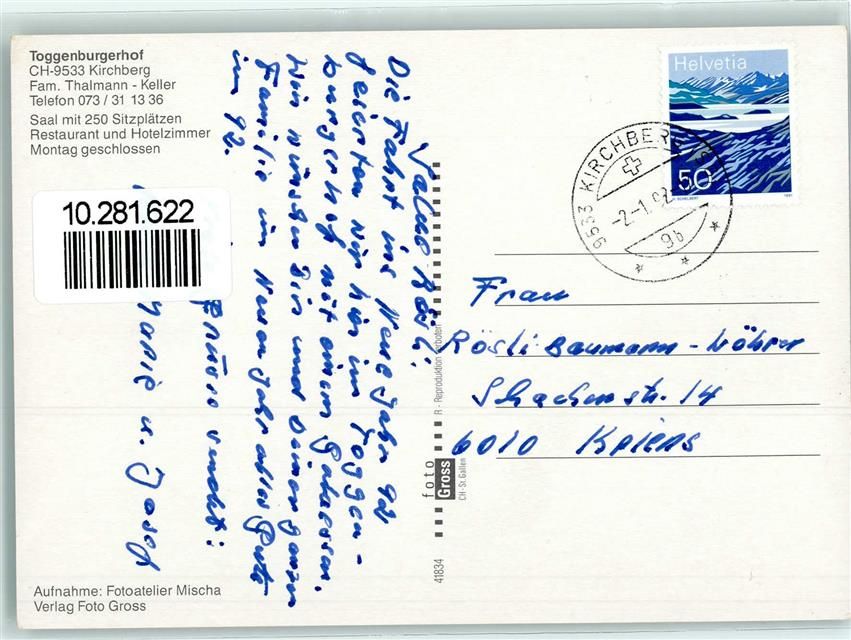 Toggenburgerhof
CH-9533 Kirchberg
Fam. Thalmann - Keller
Telefon 073 / 31 13 36
Saal mit 250 Sitzplätzen
Restaurant und Hotelzimmer
Montag geschlossen
10.281.622
Rösli!
Die Fahrt ins Neue Jahr 92
feierten wir hier im Toggen-
burgerhof mit einem Galaessen.
Wir wünschen Dir und Deiner ganzen
Familie im Neuen Jahr alles Gute
im 92.
u. Josef
Aufnahme: Fotoatelier Mischa
Verlag Foto Gross
41834
foto
Gross
CH-St. Gallen
R - Reproduktion verboten
Helvetia
50
1991
9533 KIRCHBERG SG
-2-1.92
9b
Frau
Rösli Baumann-Wöhrer
Schachenstr. 14
6010 Kriens